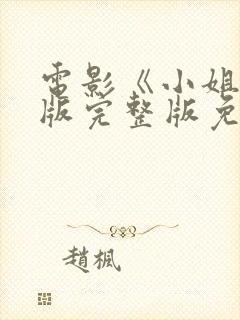 電影《小姐
版完整版免
趙楓